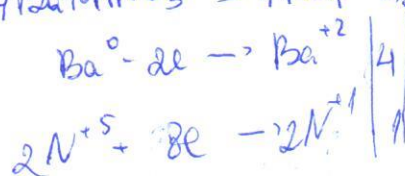 Ba⁰ - 2e → Ba⁺² | 4
2N⁺⁵ + 8e → 2N⁺¹ | 1